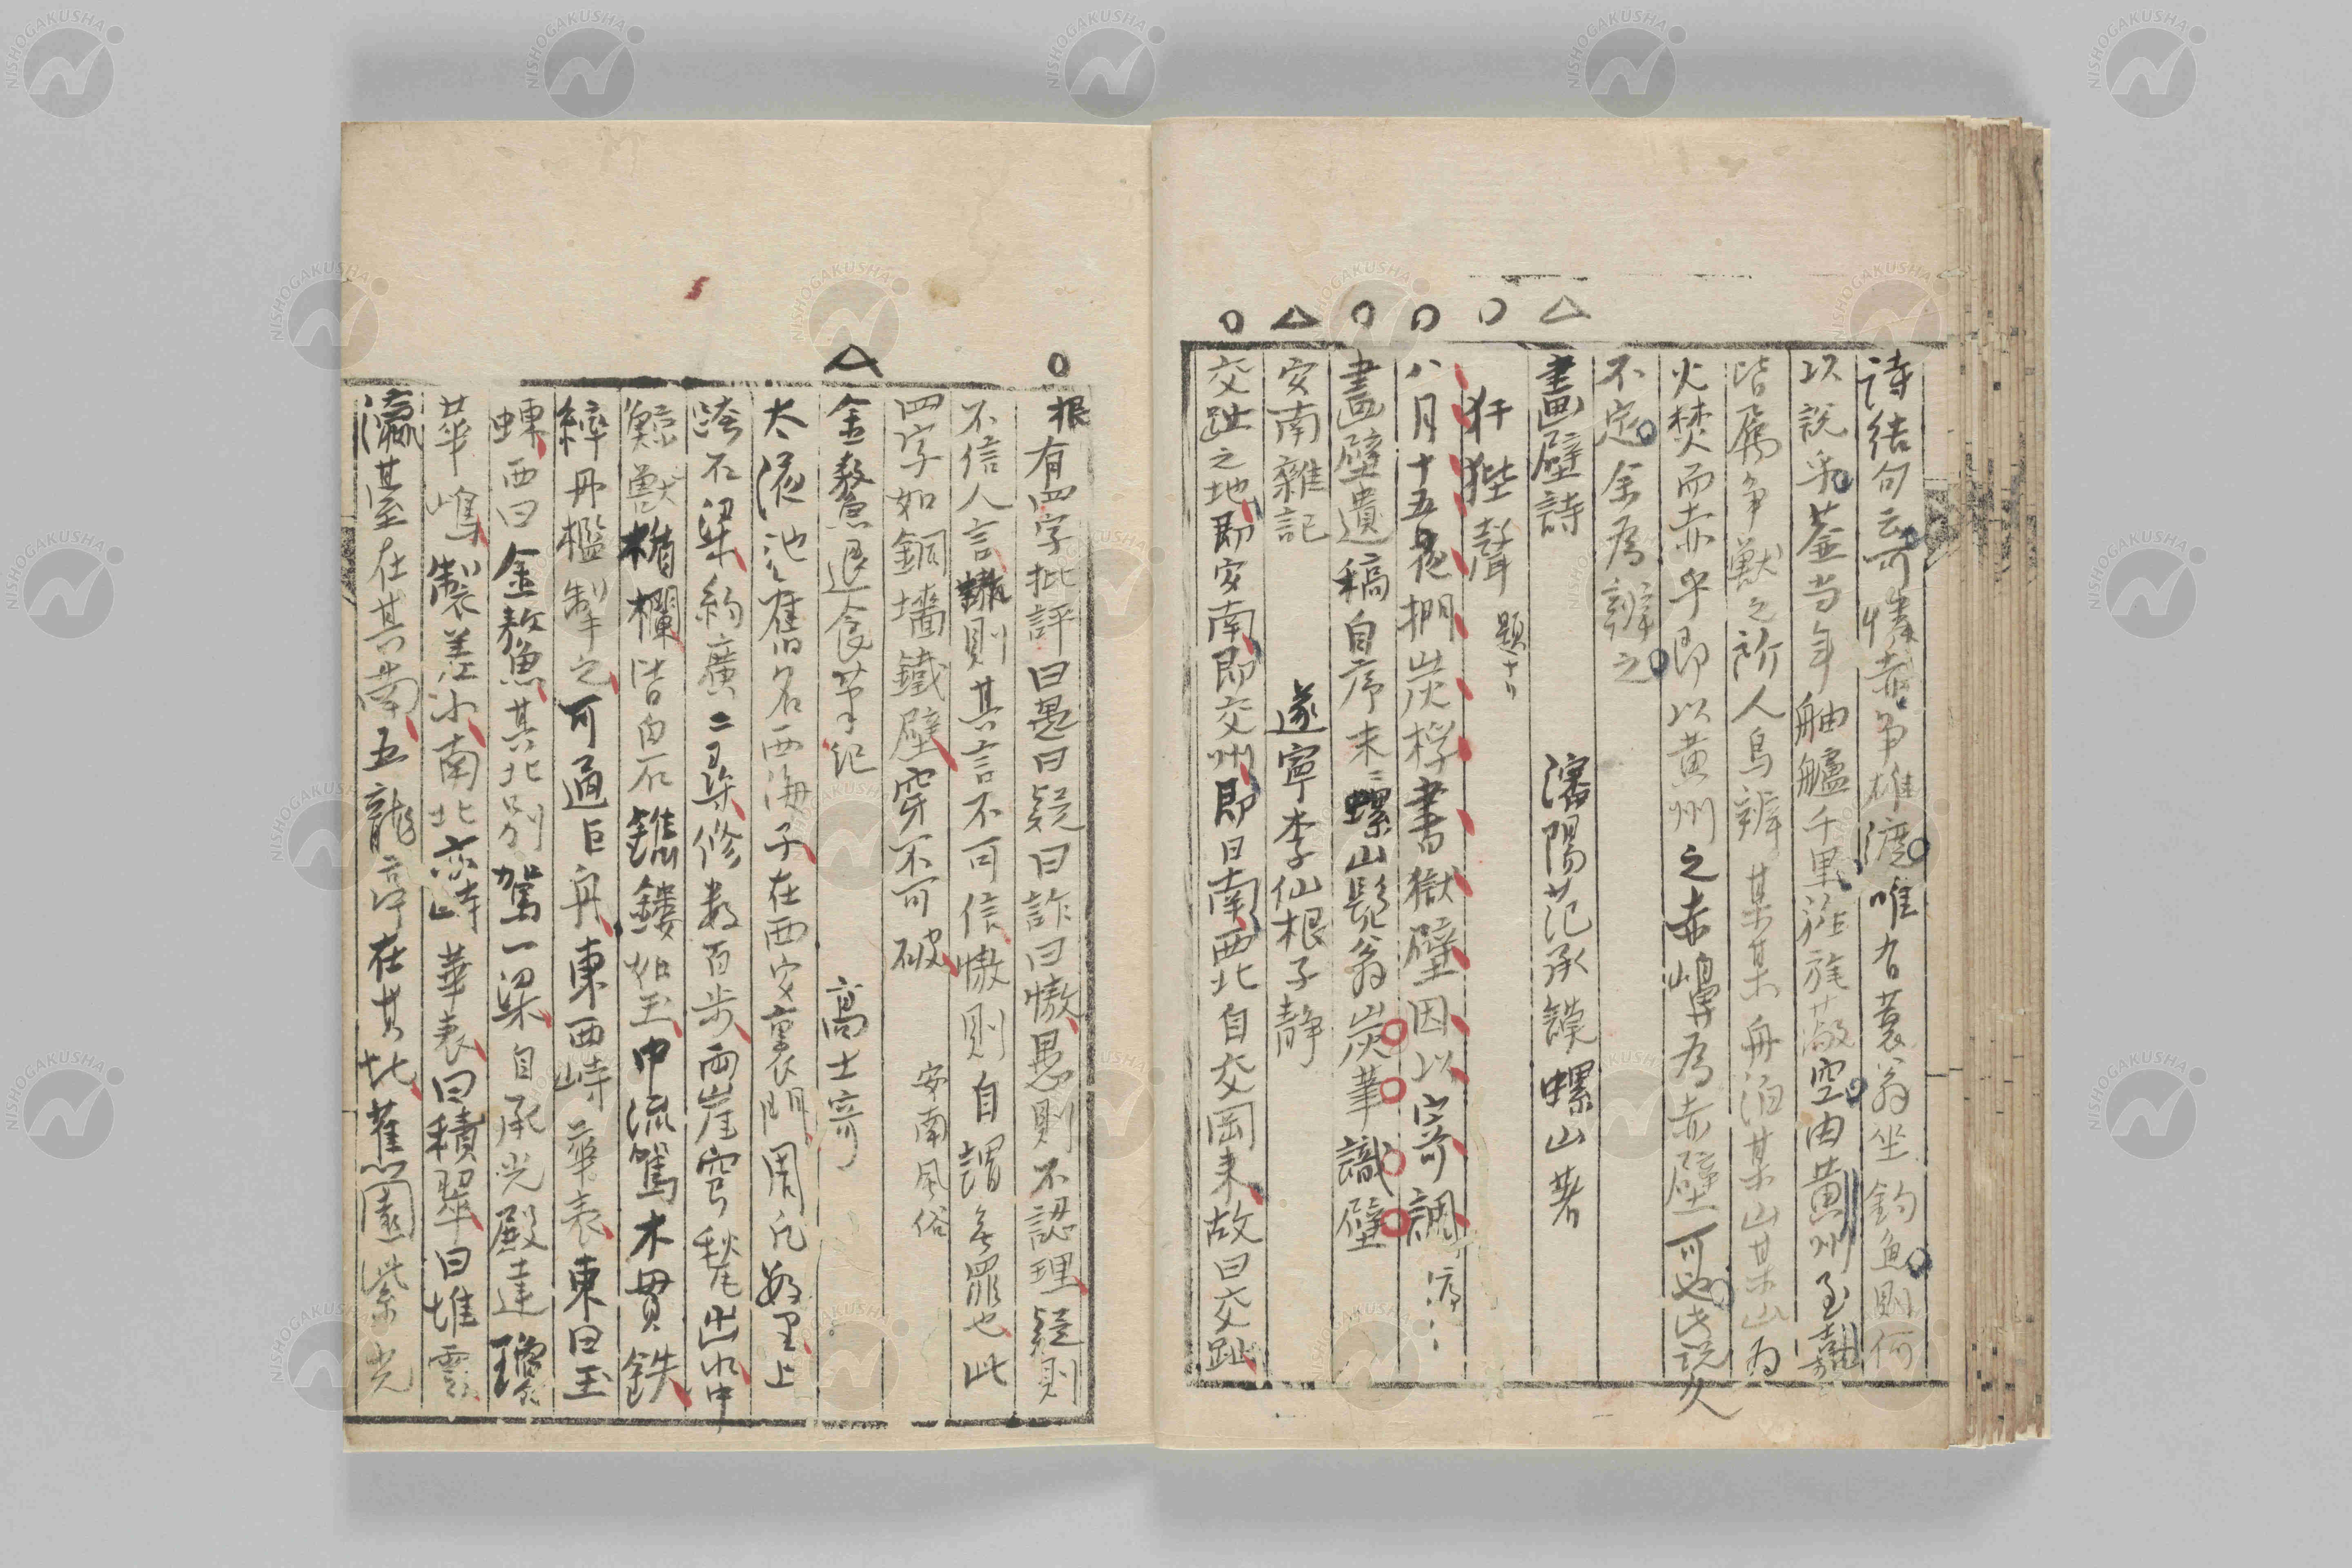 詩結句云可憐赤壁争雄渡唯有蓑翁坐釣魚則何
以説乎葢当年舳艫千里旌旗蔽空由黄州至嘉
皆属争獣之所人烏辨某某舟泊某山某山為
火焚而赤乎即以黄州之赤嶼為赤壁可也此説久
不定余為辨之
畫壁詩 瀋陽范承謨螺山著
犴狴聲 題十
八月十五夜捫炭桴書獄壁因以寄調 序
畫壁遺稿自序末螺山髯翁炭筆識壁
安南雜記 遂寧李仙根子静
交趾之地即安南即交州即日南西北自交岡来故曰交趾
根有四字批評曰愚曰疑曰詐曰慠愚則不認理疑則
不信人言詐則其言不可信慠則自謂無罪也此
四字如銅墻鐵壁穿不可破 安南風俗
金鰲退食筆記 高士奇
太液池舊名西海子在西安裏門周凡数里上
跨石梁約廣二尋修数百歩兩崖穹甃出水中
鯨獣楯欄皆白石鐫鏤如玉中流駕木貫鉄
縴丹檻掣之可通巨舟東西峙華表東曰玉
蝀西曰金鰲其北別駕一梁自承光殿達瓊
華嶋製差小南北亦峙華表曰積翠曰堆雲
瀛臺在其南五龍亭在其北蕉園紫光
NISHOGAKUSHA